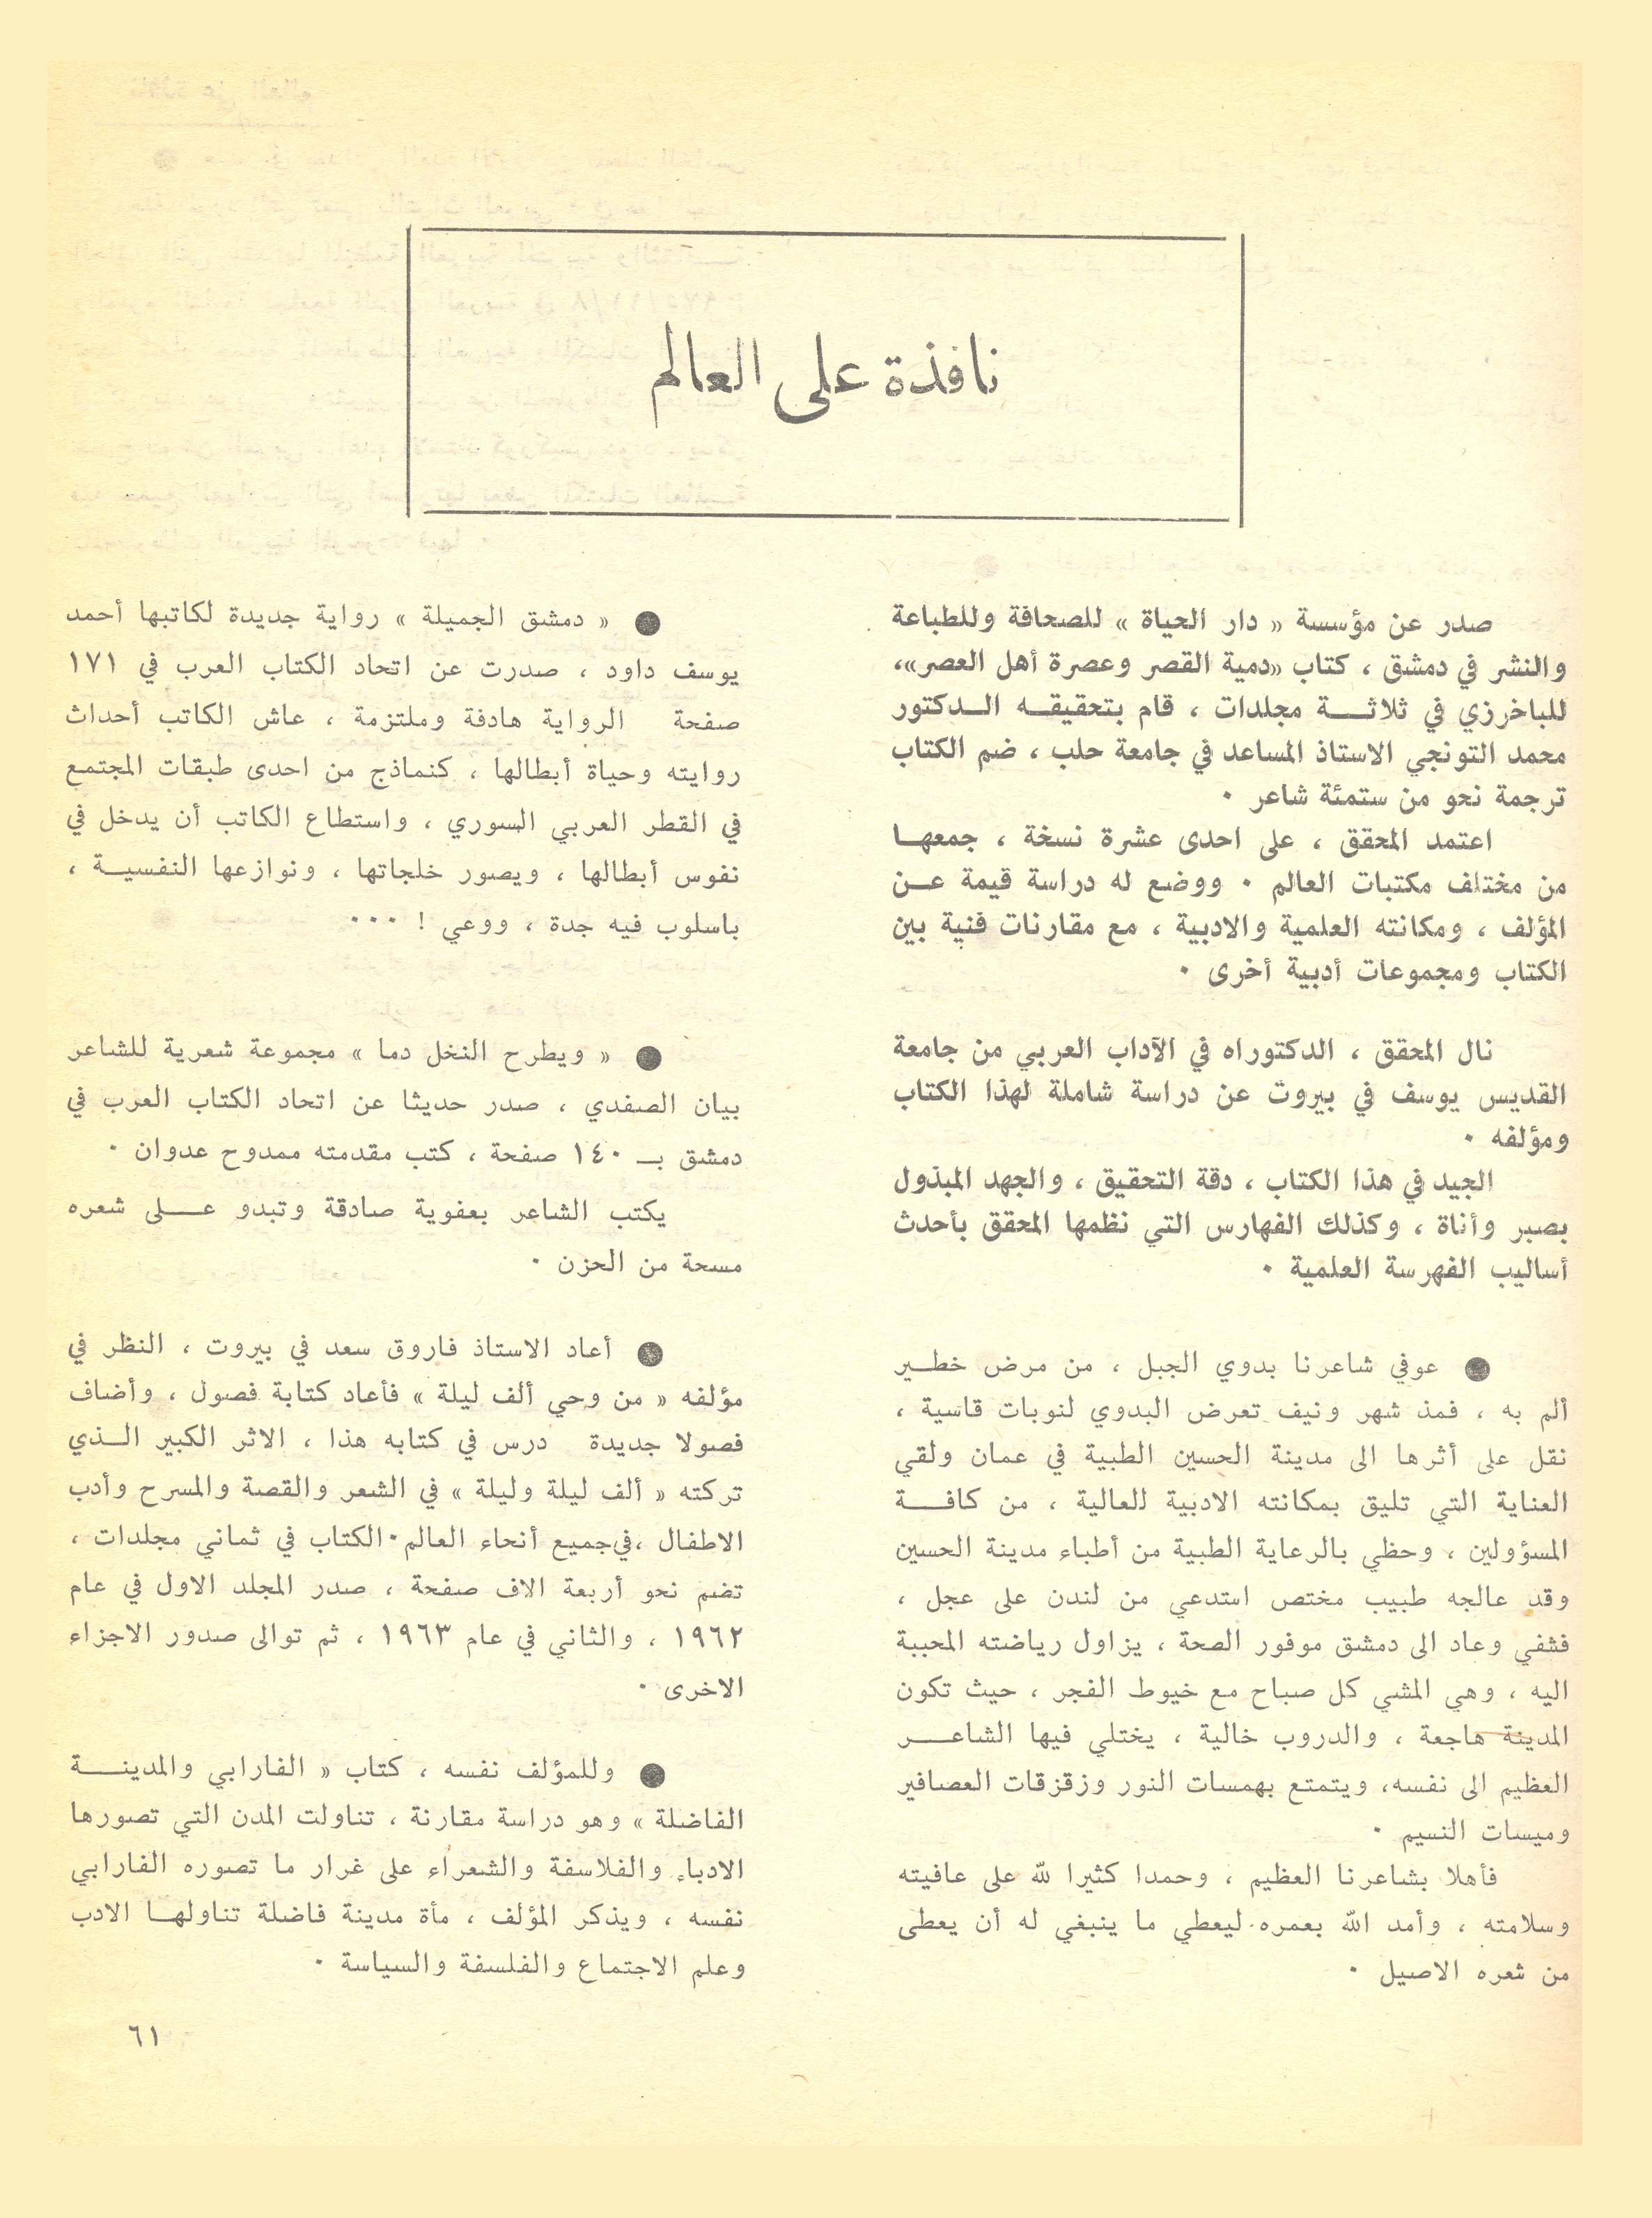 نافذة على العالم
صدر عن مؤسسة « دار الحياة » للصحافة وللطباعة
والنشر في دمشق ، كتاب «دمية القصر وعصرة أهل العصر»،
للباخرزي في ثلاثة مجلدات ، قام بتحقيقه الدكتور
محمد التونجي الاستاذ المساعد في جامعة حلب ، ضم الكتاب
ترجمة نحو من ستمئة شاعر ٠
اعتمد المحقق ، على احدى عشرة نسخة ، جمعها
من مختلف مكتبات العالم ٠ ووضع له دراسة قيمة عن
المؤلف ، ومكانته العلمية والادبية ، مع مقارنات فنية بين
الكتاب ومجموعات أدبية أخرى ٠
نال المحقق ، الدكتوراه في الآداب العربي من جامعة
القديس يوسف في بيروت عن دراسة شاملة لهذا الكتاب
ومؤلفه ٠
الجيد في هذا الكتاب ، دقة التحقيق ، والجهد المبذول
بصبر وأناة ، وكذلك الفهارس التي نظمها المحقق بأحدث
أساليب الفهرسة العلمية ٠
● عوفي شاعرنا بدوي الجبل ، من مرض خطير
ألم به ، فمذ شهر ونيف تعرض البدوي لنوبات قاسية ،
نقل على أثرها الى مدينة الحسين الطبية في عمان ولقي
العناية التي تليق بمكانته الادبية العالية ، من كافة
المسؤولين ، وحظي بالرعاية الطبية من أطباء مدينة الحسين
وقد عالجه طبيب مختص استدعي من لندن على عجل ،
فشفي وعاد الى دمشق موفور الصحة ، يزاول رياضته المحببة
اليه ، وهي المشي كل صباح مع خيوط الفجر ، حيث تكون
المدينة هاجعة ، والدروب خالية ، يختلي فيها الشاعر
العظيم الى نفسه، ويتمتع بهمسات النور وزقزقات العصافير
وميسات النسيم ٠
فأهلا بشاعرنا العظيم ، وحمدا كثيرا لله على عافيته
وسلامته ، وأمد الله بعمره ليعطي ما ينبغي له أن يعطى
من شعره الاصيل ٠
● « دمشق الجميلة » رواية جديدة لكاتبها أحمد
يوسف داود ، صدرت عن اتحاد الكتاب العرب في ١٧١
صفحة الرواية هادفة وملتزمة ، عاش الكاتب أحداث
روايته وحياة أبطالها ، كنماذج من احدى طبقات المجتمع
في القطر العربي السوري ، واستطاع الكاتب أن يدخل في
نفوس أبطالها ، ويصور خلجاتها ، ونوازعها النفسية ،
باسلوب فيه جدة ، ووعي ! ٠٠٠
● « ويطرح النخل دما » مجموعة شعرية للشاعر
بيان الصفدي ، صدر حديثا عن اتحاد الكتاب العرب في
دمشق بـ ١٤٠ صفحة ، كتب مقدمته ممدوح عدوان ٠
يكتب الشاعر بعفوية صادقة وتبدو على شعره
مسحة من الحزن ٠
● أعاد الاستاذ فاروق سعد في بيروت ، النظر في
مؤلفه « من وحي ألف ليلة » فأعاد كتابة فصول ، وأضاف
فصولا جديدة درس في كتابه هذا ، الاثر الكبير الذي
تركته « ألف ليلة وليلة » في الشعر والقصة والمسرح وأدب
الاطفال ،في جميع أنحاء العالم ٠ الكتاب في ثماني مجلدات ،
تضم نحو أربعة الاف صفحة ، صدر المجلد الاول في عام
١٩٦٢ ، والثاني في عام ١٩٦٣ ، ثم توالى صدور الاجزاء
الاخرى ٠
● وللمؤلف نفسه ، كتاب « الفارابي والمدينة
الفاضلة » وهو دراسة مقارنة ، تناولت المدن التي تصورها
الادباء والفلاسفة والشعراء على غرار ما تصوره الفارابي
نفسه ، ويذكر المؤلف ، مأة مدينة فاضلة تناولها الادب
وعلم الاجتماع والفلسفة والسياسة ٠
٦١